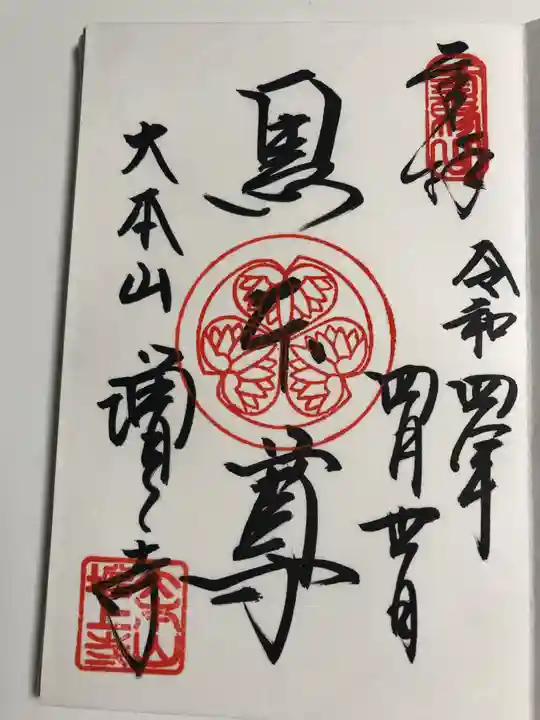 奉拝
令和四年
四月
黒本尊
大本山 増上寺